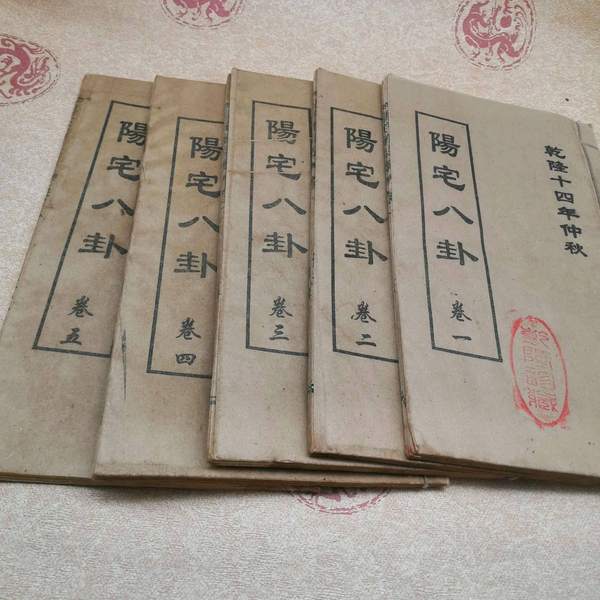 陽宅八卦
卷一
乾隆十四年仲秋
陽宅八卦
卷二
陽宅八卦
卷三
陽宅八卦
卷四
陽宅八卦
卷五